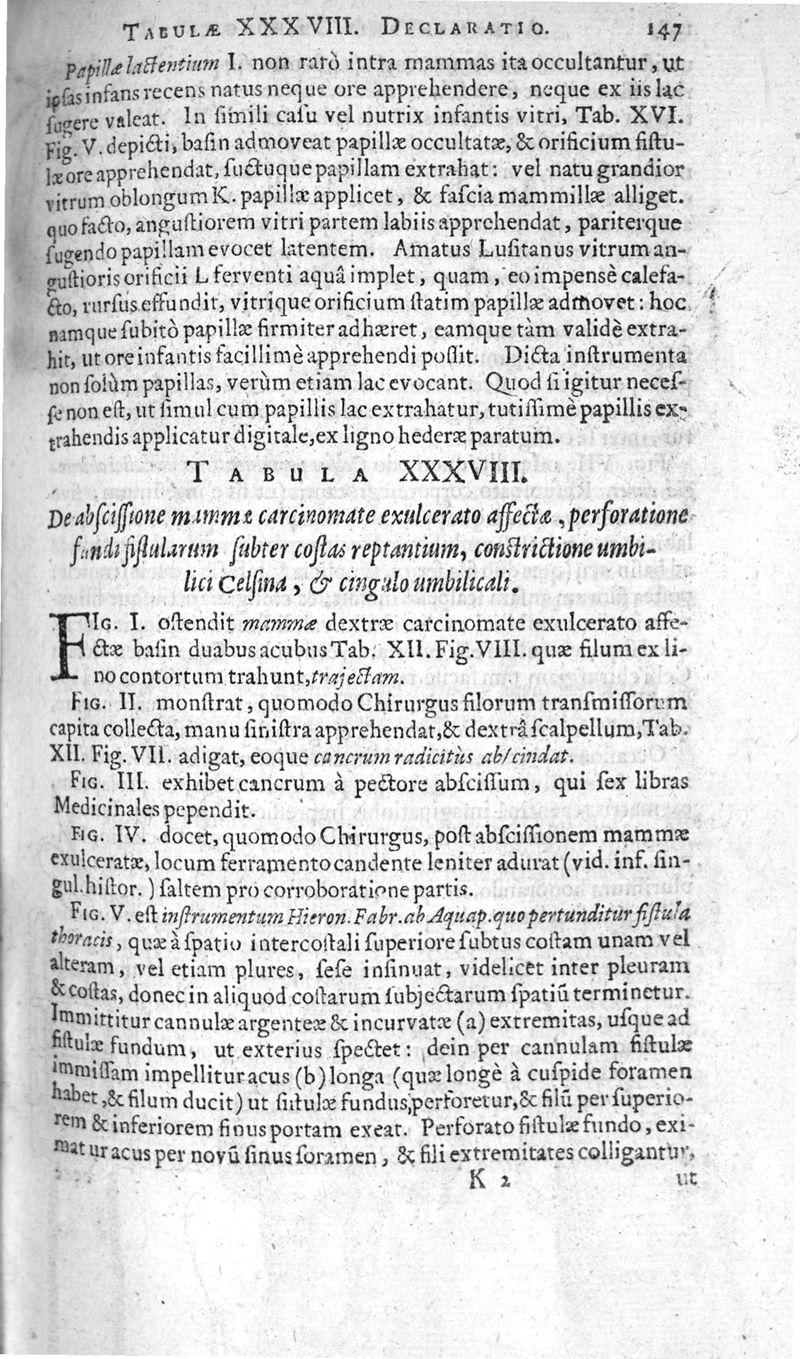 TABULÆ XXXVIII. DECLARATIO. 147
Papillæ lactentium I. non rarò intra mammas ita occultantur, ut
ipſas infans recens natus neque ore apprehendere, neque ex iis lac
ſugere valeat. In ſimili caſu vel nutrix infantis vitri, Tab. XVI.
Fig. V. depicti, baſin admoveat papillæ occultatæ, & orificium fiſtu-
læ ore apprehendat, ſuctuque papillam extrahat: vel natu grandior
vitrum oblongum K. papillæ applicet, & faſcia mammillæ alliget.
quo facto, anguſtiorem vitri partem labiis apprehendat, pariterque
ſugendo papillam evocet latentem. Amatus Luſitanus vitrum an-
guſtioris orificii L ferventi aquâ implet, quam, eo impensè calefa-
cto, rurſus effundit, vitrique orificium ſtatim papillæ admovet: hoc
namque ſubitò papillæ firmiter adhæret, eamque tàm validè extra-
hit, ut ore infantis facillimè apprehendi poſſit. Dicta inſtrumenta
non ſolùm papillas, verùm etiam lac evocant. Quod ſi igitur neceſ-
ſe non eſt, ut ſimul cum papillis lac extrahatur, tutiſſimè papillis ex-
trahendis applicatur digitale, ex ligno hederæ paratum.
TABULA XXXVIII.
De abſciſſione mammæ carcinomate exulcerato affectæ, perforatione
fundi fiſtularum ſubter coſtas reptantium, conſtrictione umbi-
lici Celſina, & cingulo umbilicali.
FIG. I. oſtendit mammæ dextræ carcinomate exulcerato affe-
ctæ baſin duabus acubus Tab. XII. Fig. VIII. quæ filum ex li-
no contortum trahunt, trajectam.
FIG. II. monſtrat, quomodo Chirurgus filorum tranſmiſſorum
capita collecta, manu ſiniſtra apprehendat, & dextrâ ſcalpellum, Tab.
XII. Fig. VII. adigat, eoque cancrum radicitùs abſcindat.
FIG. III. exhibet cancrum à pectore abſciſſum, qui ſex libras
Medicinales pependit.
FIG. IV. docet, quomodo Chirurgus, poſt abſciſſionem mammæ
exulceratæ, locum ferramento candente leniter adurat (vid. inf. ſin-
gul. hiſtor.) ſaltem pro corroboratione partis.
FIG. V. eſt inſtrumentum Hieron. Fabr. ab Aquap. quo pertunditur fiſtula
thoracis, quæ à ſpatio intercoſtali ſuperiore ſubtus coſtam unam vel
alteram, vel etiam plures, ſeſe inſinuat, videlicet inter pleuram
& coſtas, donec in aliquod coſtarum ſubjectarum ſpatiũ terminetur.
Immittitur cannulæ argenteæ & incurvatæ (a) extremitas, uſque ad
fiſtulæ fundum, ut exterius ſpectet: dein per cannulam fiſtulæ
immiſſam impellitur acus (b) longa (quæ longè à cuſpide foramen
habet, & filum ducit) ut fiſtulæ fundus, perforetur, & filũ per ſuperio-
rem & inferiorem ſinus portam exeat. Perforato fiſtulæ fundo, exi-
matur acus per novũ ſinus foramen, & fili extremitates colligantur,
K 2 ut